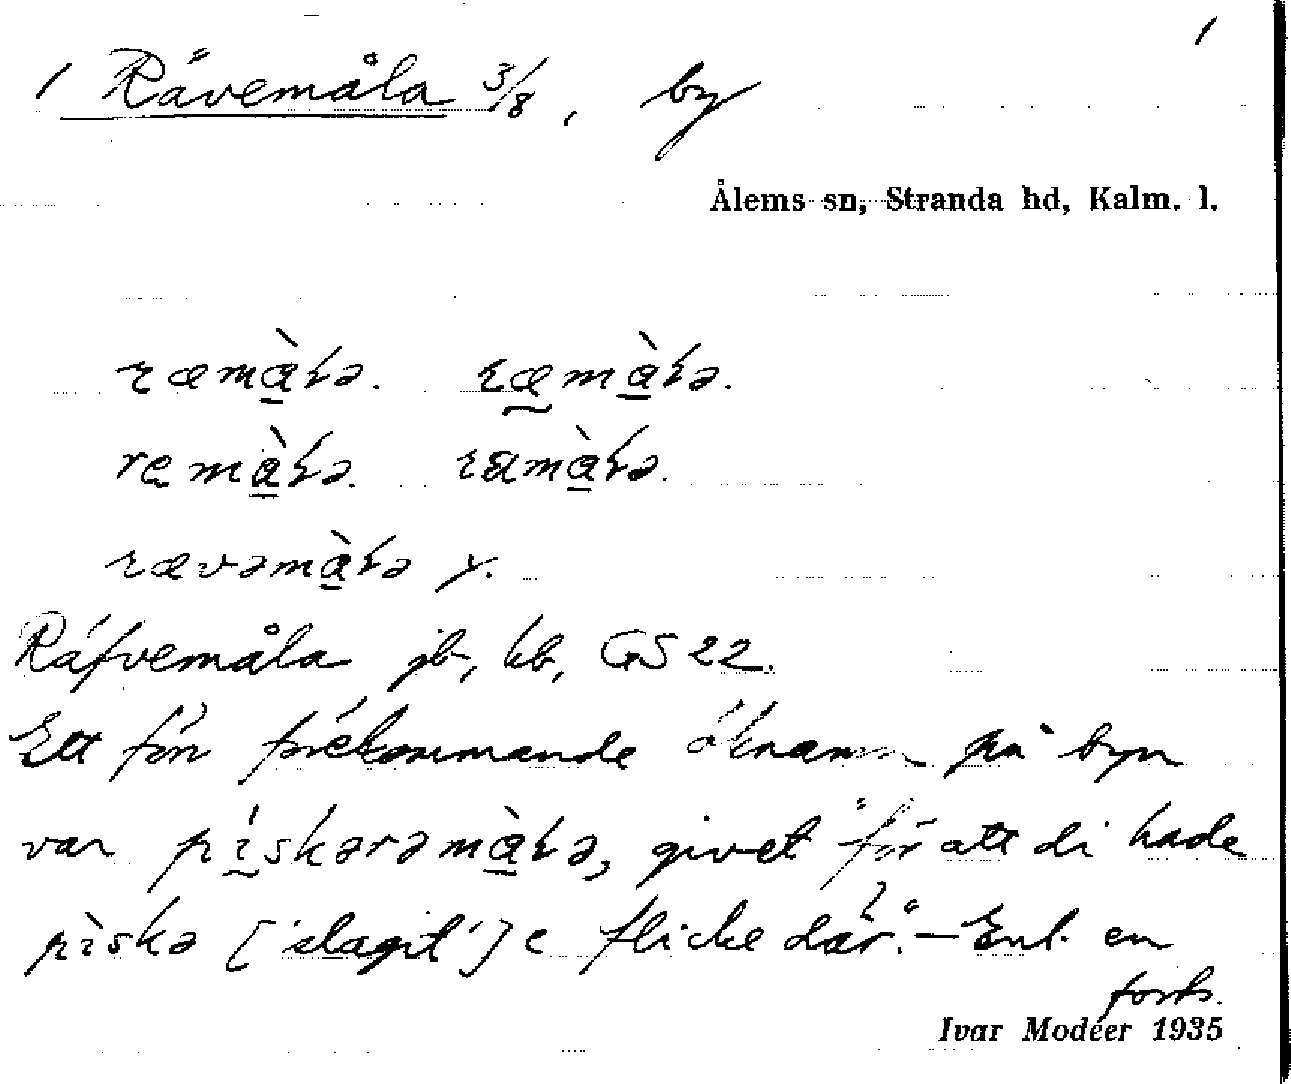 1
1 Rävemåla 3/8, by
Ålems sn, Stranda hd, Kalm. l.
ræmàɫə. ræmàɫə.
remàɫə. ramàɫə.
rævəmàɫə y.
Räfvemåla jb, kb, GS 22.
Ett förr förekommande öknamn på byn
var pìskərəmàɫə, givet "för att di hade
pìskə ['slagit'] e flicke där". – Enl. en
forts.
Ivar Modéer 1935